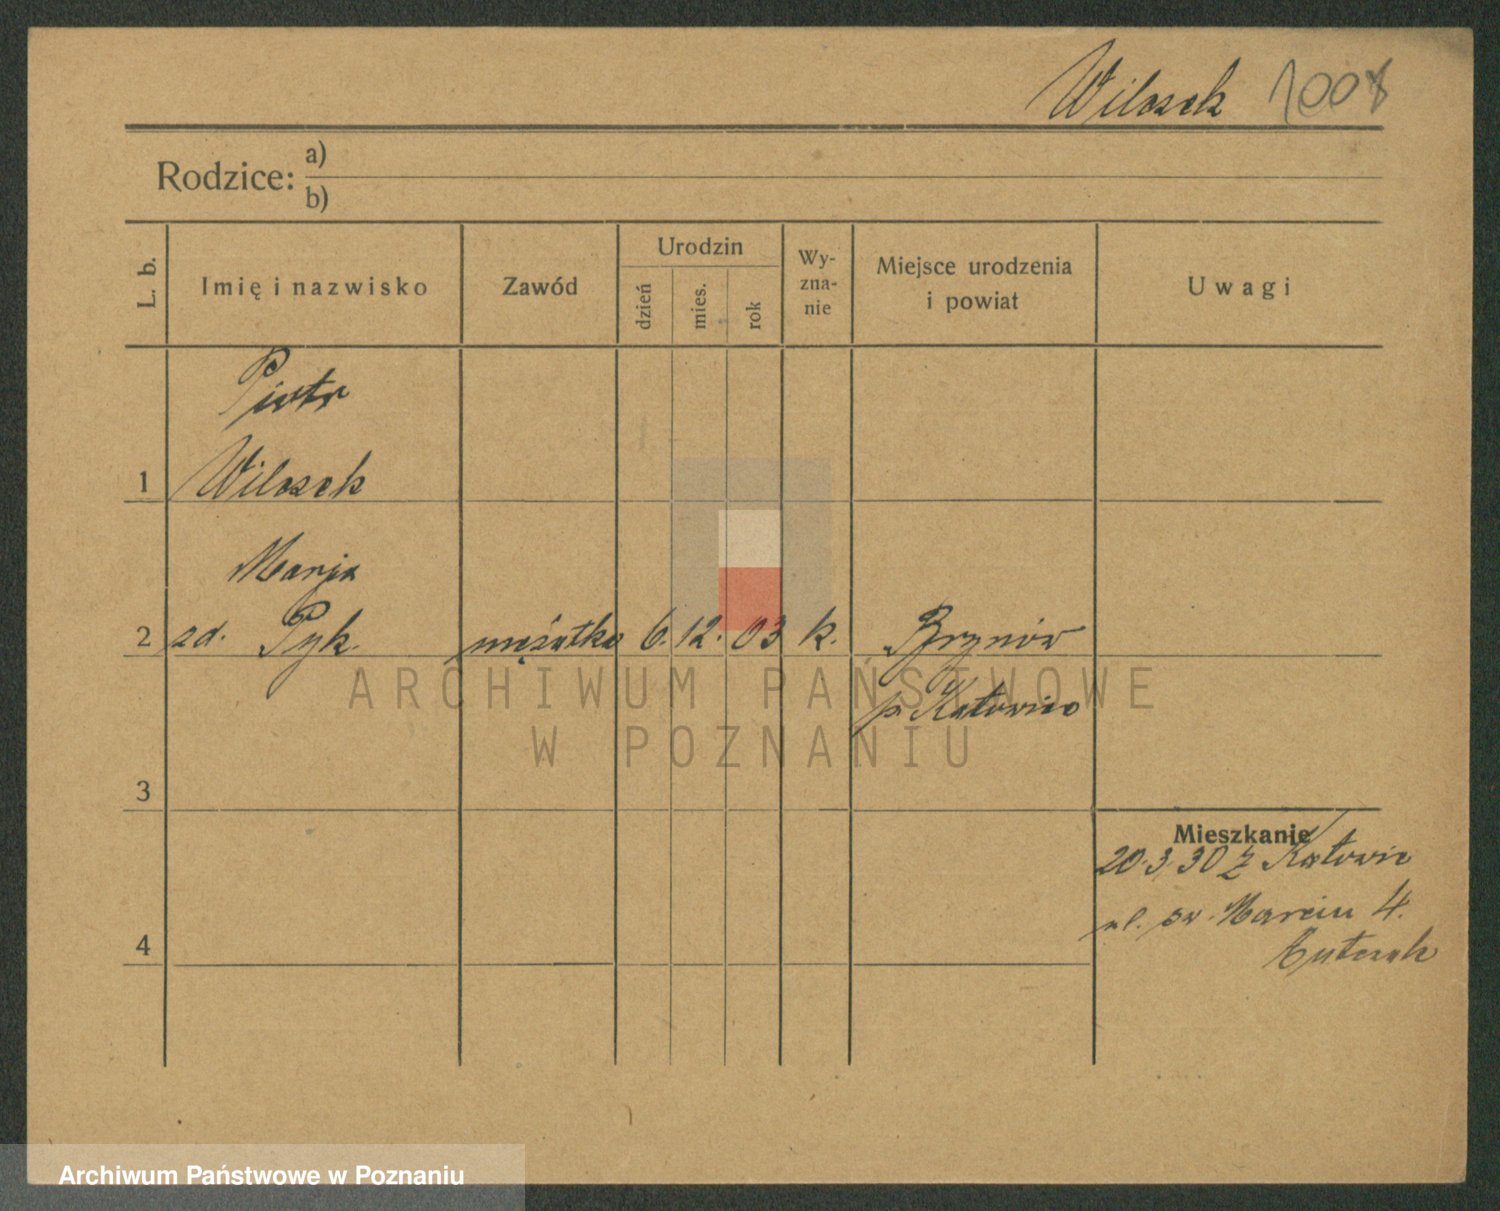 Wilczek 1008
Rodzice: a)
b)
L. b.
Imię i nazwisko
Zawód
Urodzin
dzień
mies.
rok
Wy-
zna-
nie
Miejsce urodzenia
i powiat
Uwagi
Piotr
1 Wilczek
Marja
2 zd. Pyk. mężatka 6. 12. 03 k. Brynów
p. Katowice
3
4
Mieszkanie
20.3.30 z Katowic
ul. św. Marcin 4.
ARCHIWUM PAŃSTWOWE
W POZNANIU
Archiwum Państwowe w Poznaniu